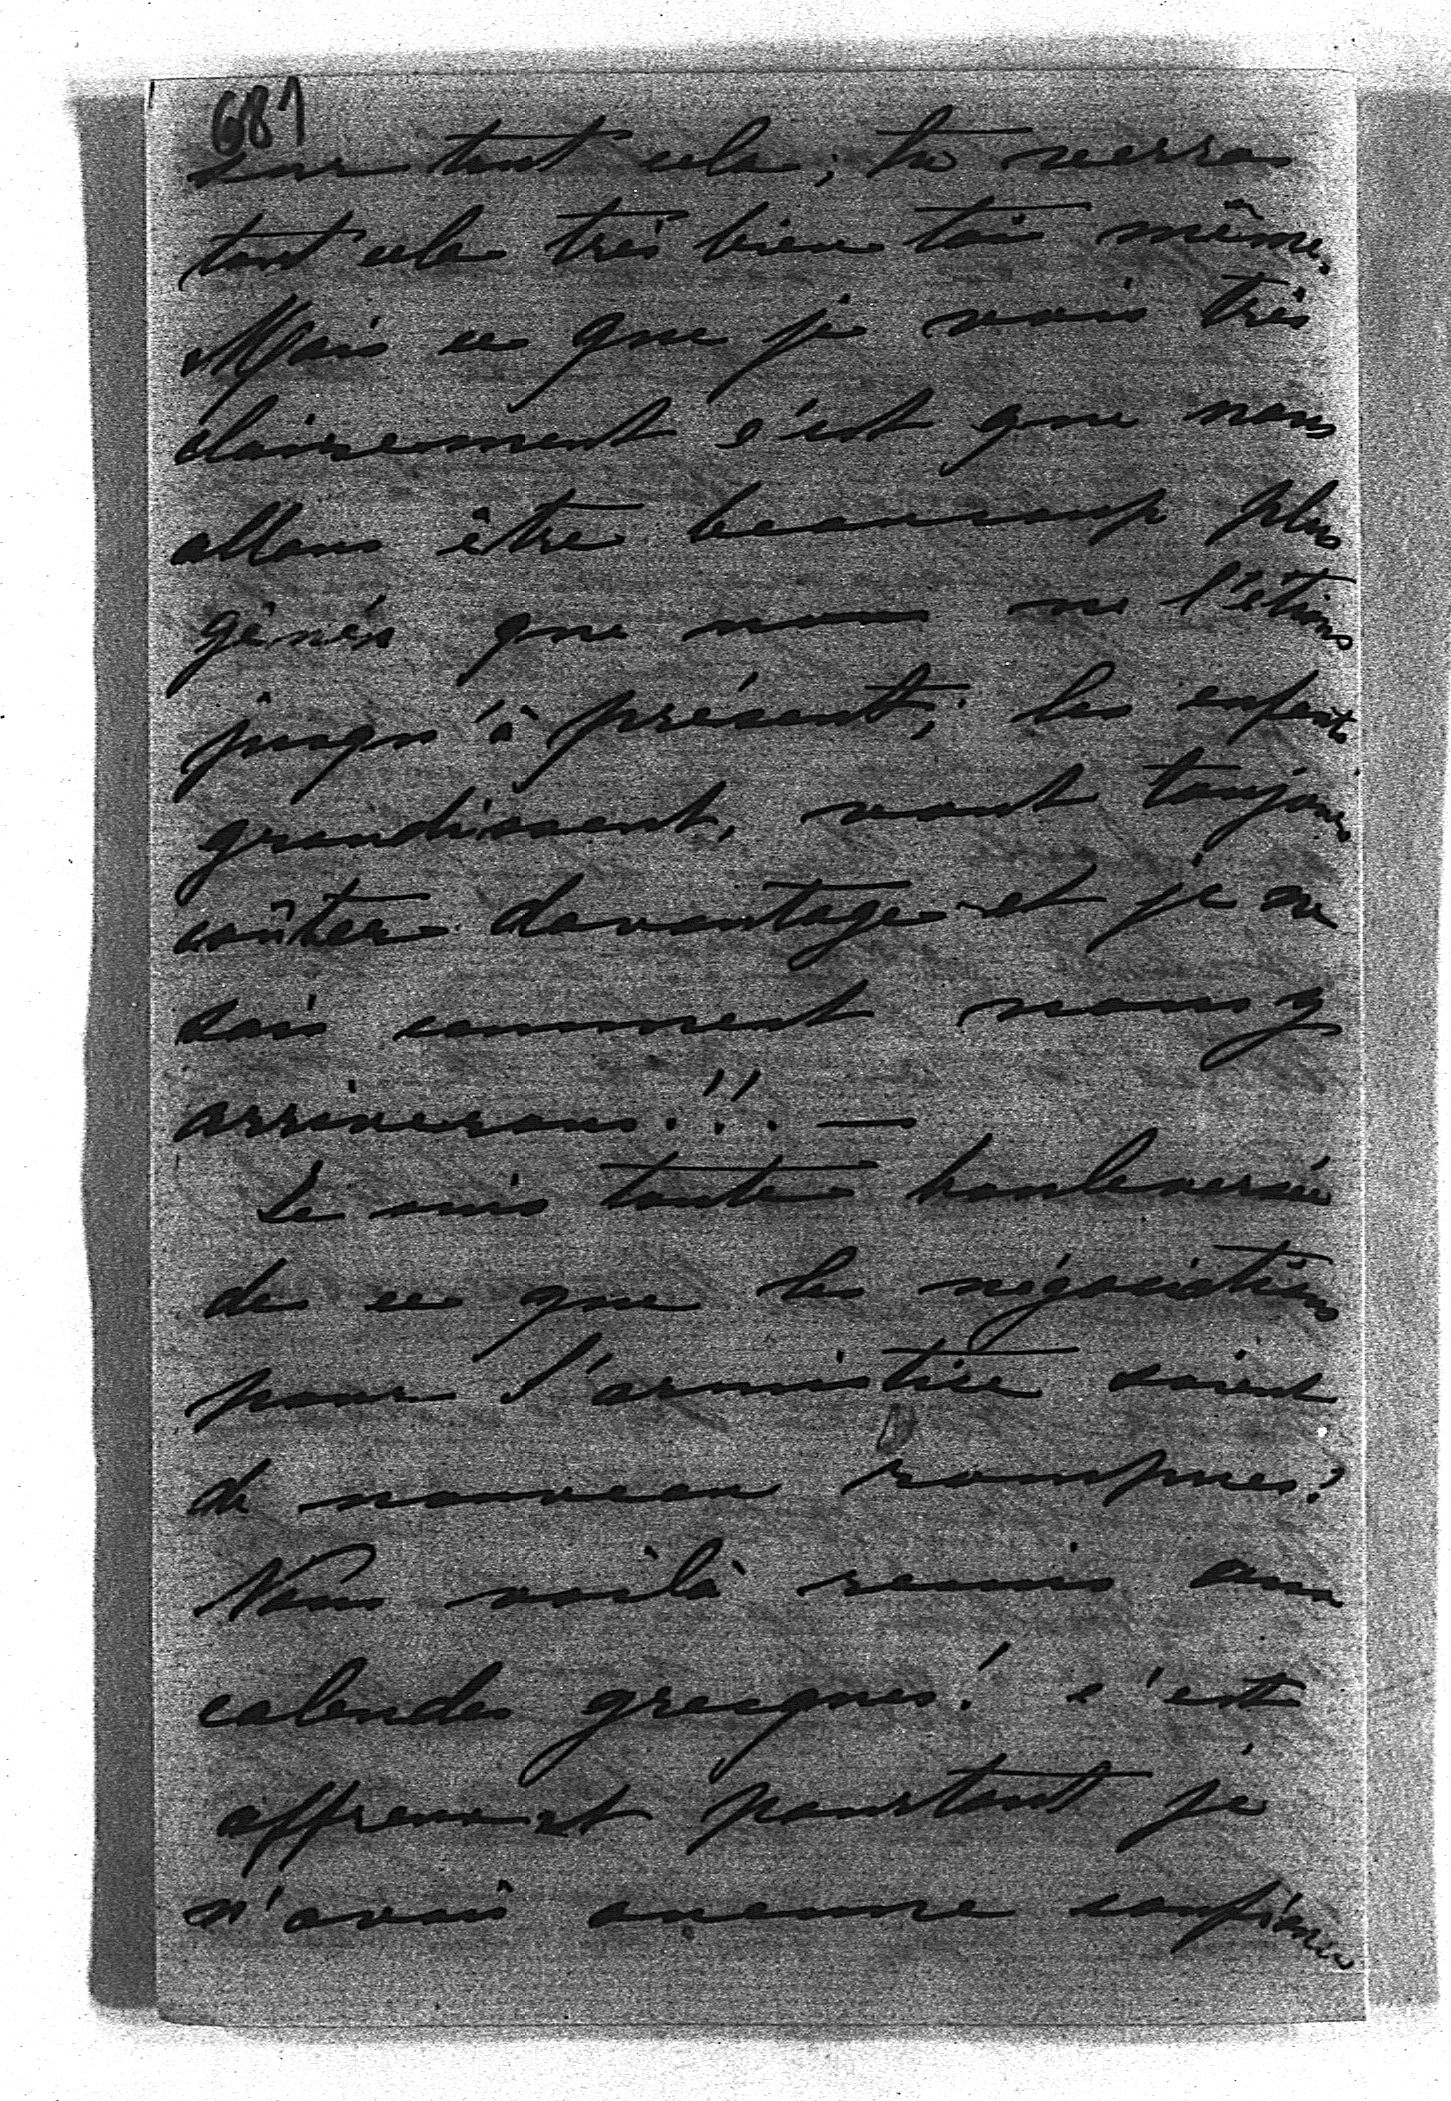 681
sur tout cela ; tu verras
tout cela très bien toi même.
Mais ce que je vois très
clairement c'est que nous
allons être beaucoup plus
gênés que nous ne l'étions
jusqu'à présent ; les enfants
grandissent, vont toujours
coûter davantage et je ne
sais comment nous y
arriverons !!. —
Je suis toute bouleversée
de ce que les négociations
pour l'armistice soient
de nouveau rompues ?
Nous voilà remis aux
calendes grecques ! c'est
affreux et pourtant je
n'avais aucune confiance